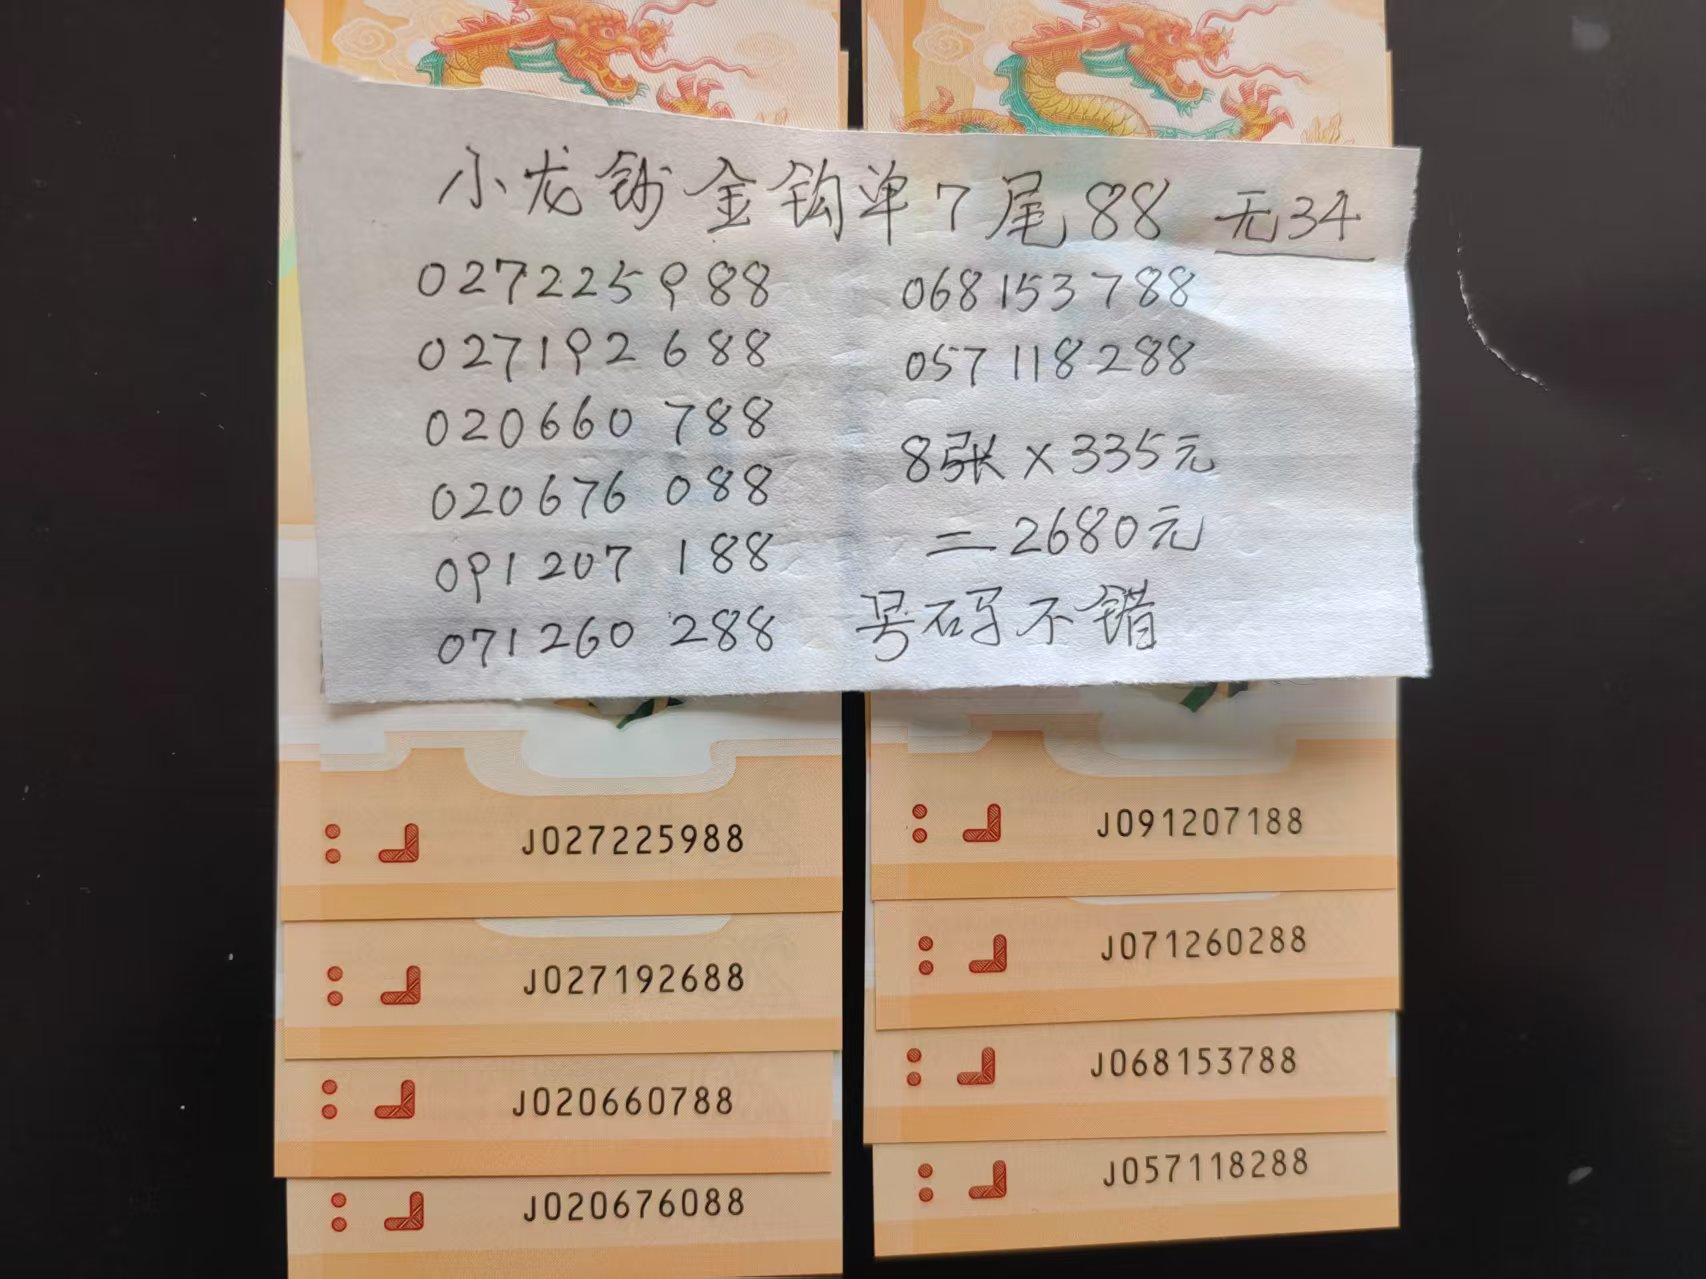 小龙钞金钩单7尾88 无34
027225988
027192688
020660788
020676088
091207188
071260288
068153788
057118288
8张×335元
=2680元
号码不错
J027225988
J027192688
J020660788
J020676088
J091207188
J071260288
J068153788
J057118288